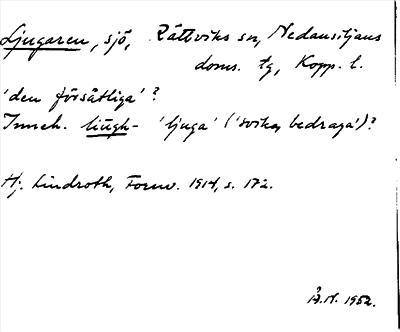 Ljugaren, sjö, Rättviks sn, Nedansiljans
doms. tg, Kopp. l.
'den försåtliga'?
Inneh. liūgh- 'ljuga' ('svika, bedraga')?
Hj. Lindroth, Fornv. 1914, s. 172.
Å.H. 1952.